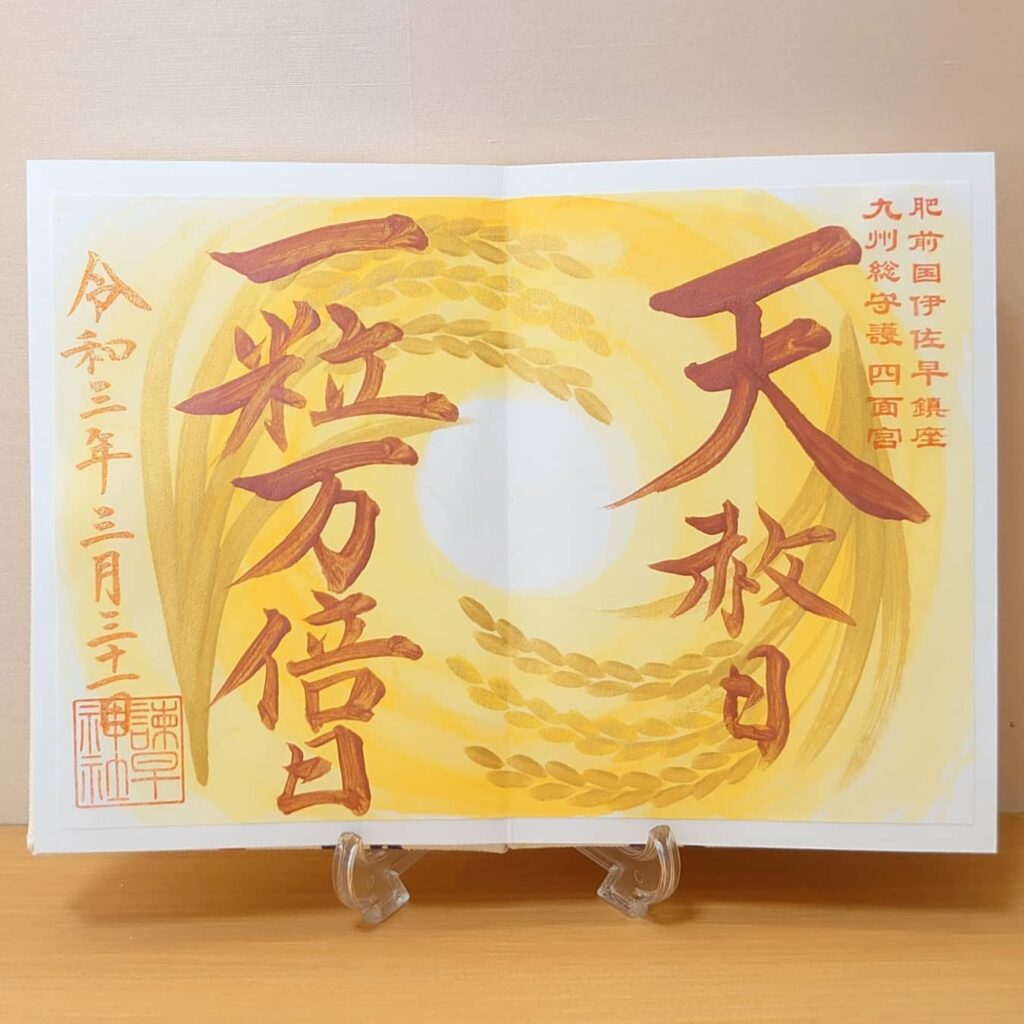 肥前国伊佐早鎮座
九州総守護 四面宮
天赦日
一粒万倍日
令和三年 三月三十一日
諫早神社